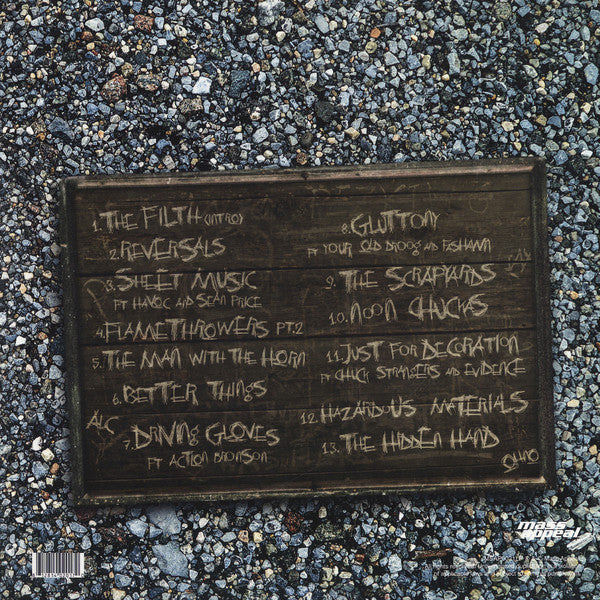 1. THE FILTH (INTRO)
2. REVERSALS
3. SHEET MUSIC
FT HAVOC AND SEAN PRICE
4. FLAMETHROWERS PT.2
5. THE MAN WITH THE HORN
6. BETTER THINGS
ALC
7. DRIVING GLOVES
FT ACTION BRONSON
8. GLUTTONY
FT YOUR OLD DROOG AND FASHAWN
9. THE SCRAPYARDS
10. NOON CHUCKS
11. JUST FOR DECORATION
FT CHUCK STRANGERS AND EVIDENCE
12. HAZARDOUS MATERIALS
13. THE HIDDEN HAND
OHNO
mass
appeal